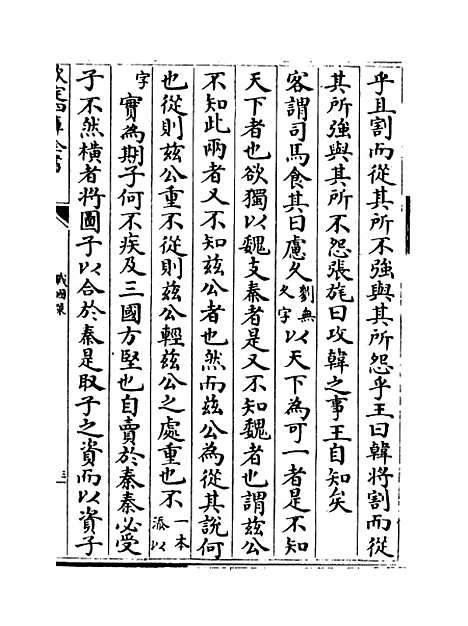 乎且割而從其所不強與其所怨乎王曰韓將割而從
其所強與其所不怨張旄曰攻韓之事王自知矣
客謂司馬食其曰慮久劉無久字以天下為可一者是不知
天下者也欲獨以魏支秦者是又不知魏者也謂兹公
不知此兩者又不知兹公者也然而兹公為從其說何
也從則兹公重不從則兹公輕兹公之處重也不一本添以
字實為期子何不疾及三國方堅也自賣於秦秦必受
子不然橫者將圖子以合於秦是取子之資而以資子
欽定四庫全書
戰國策
三